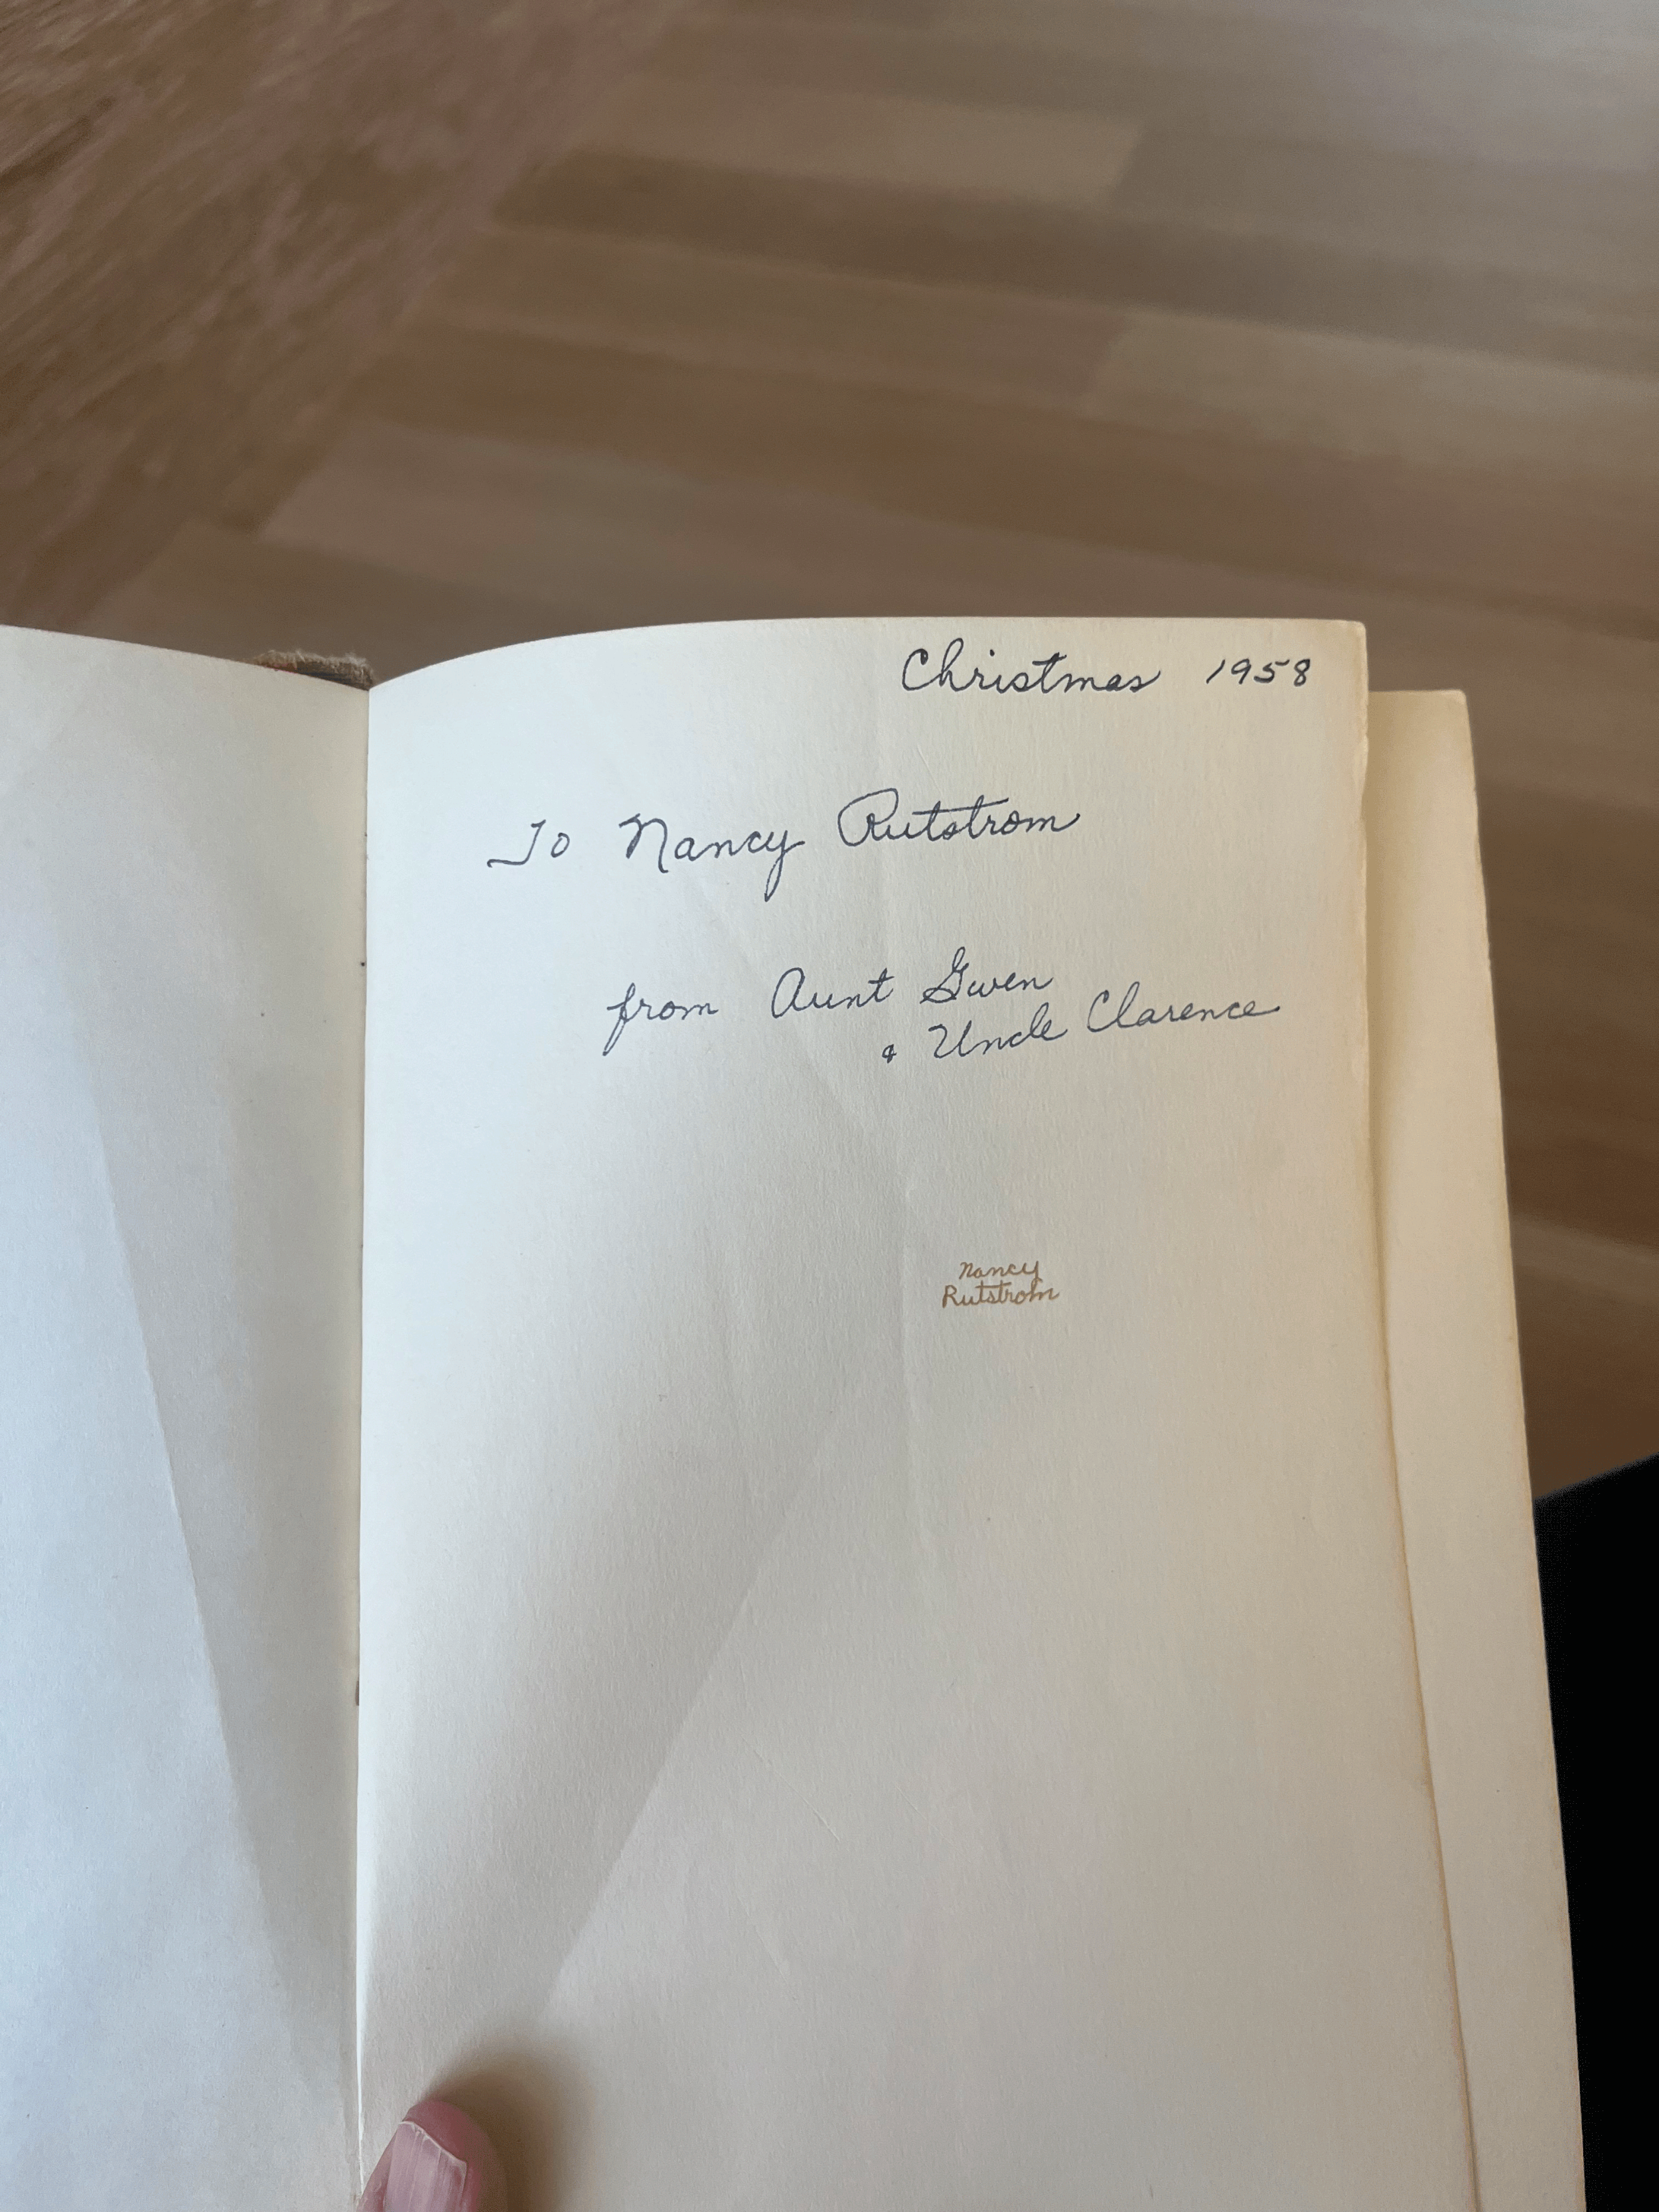 Christmas 1958
To Nancy Rutstrom
from Aunt Gwen
& Uncle Clarence
Nancy
Rutstrom